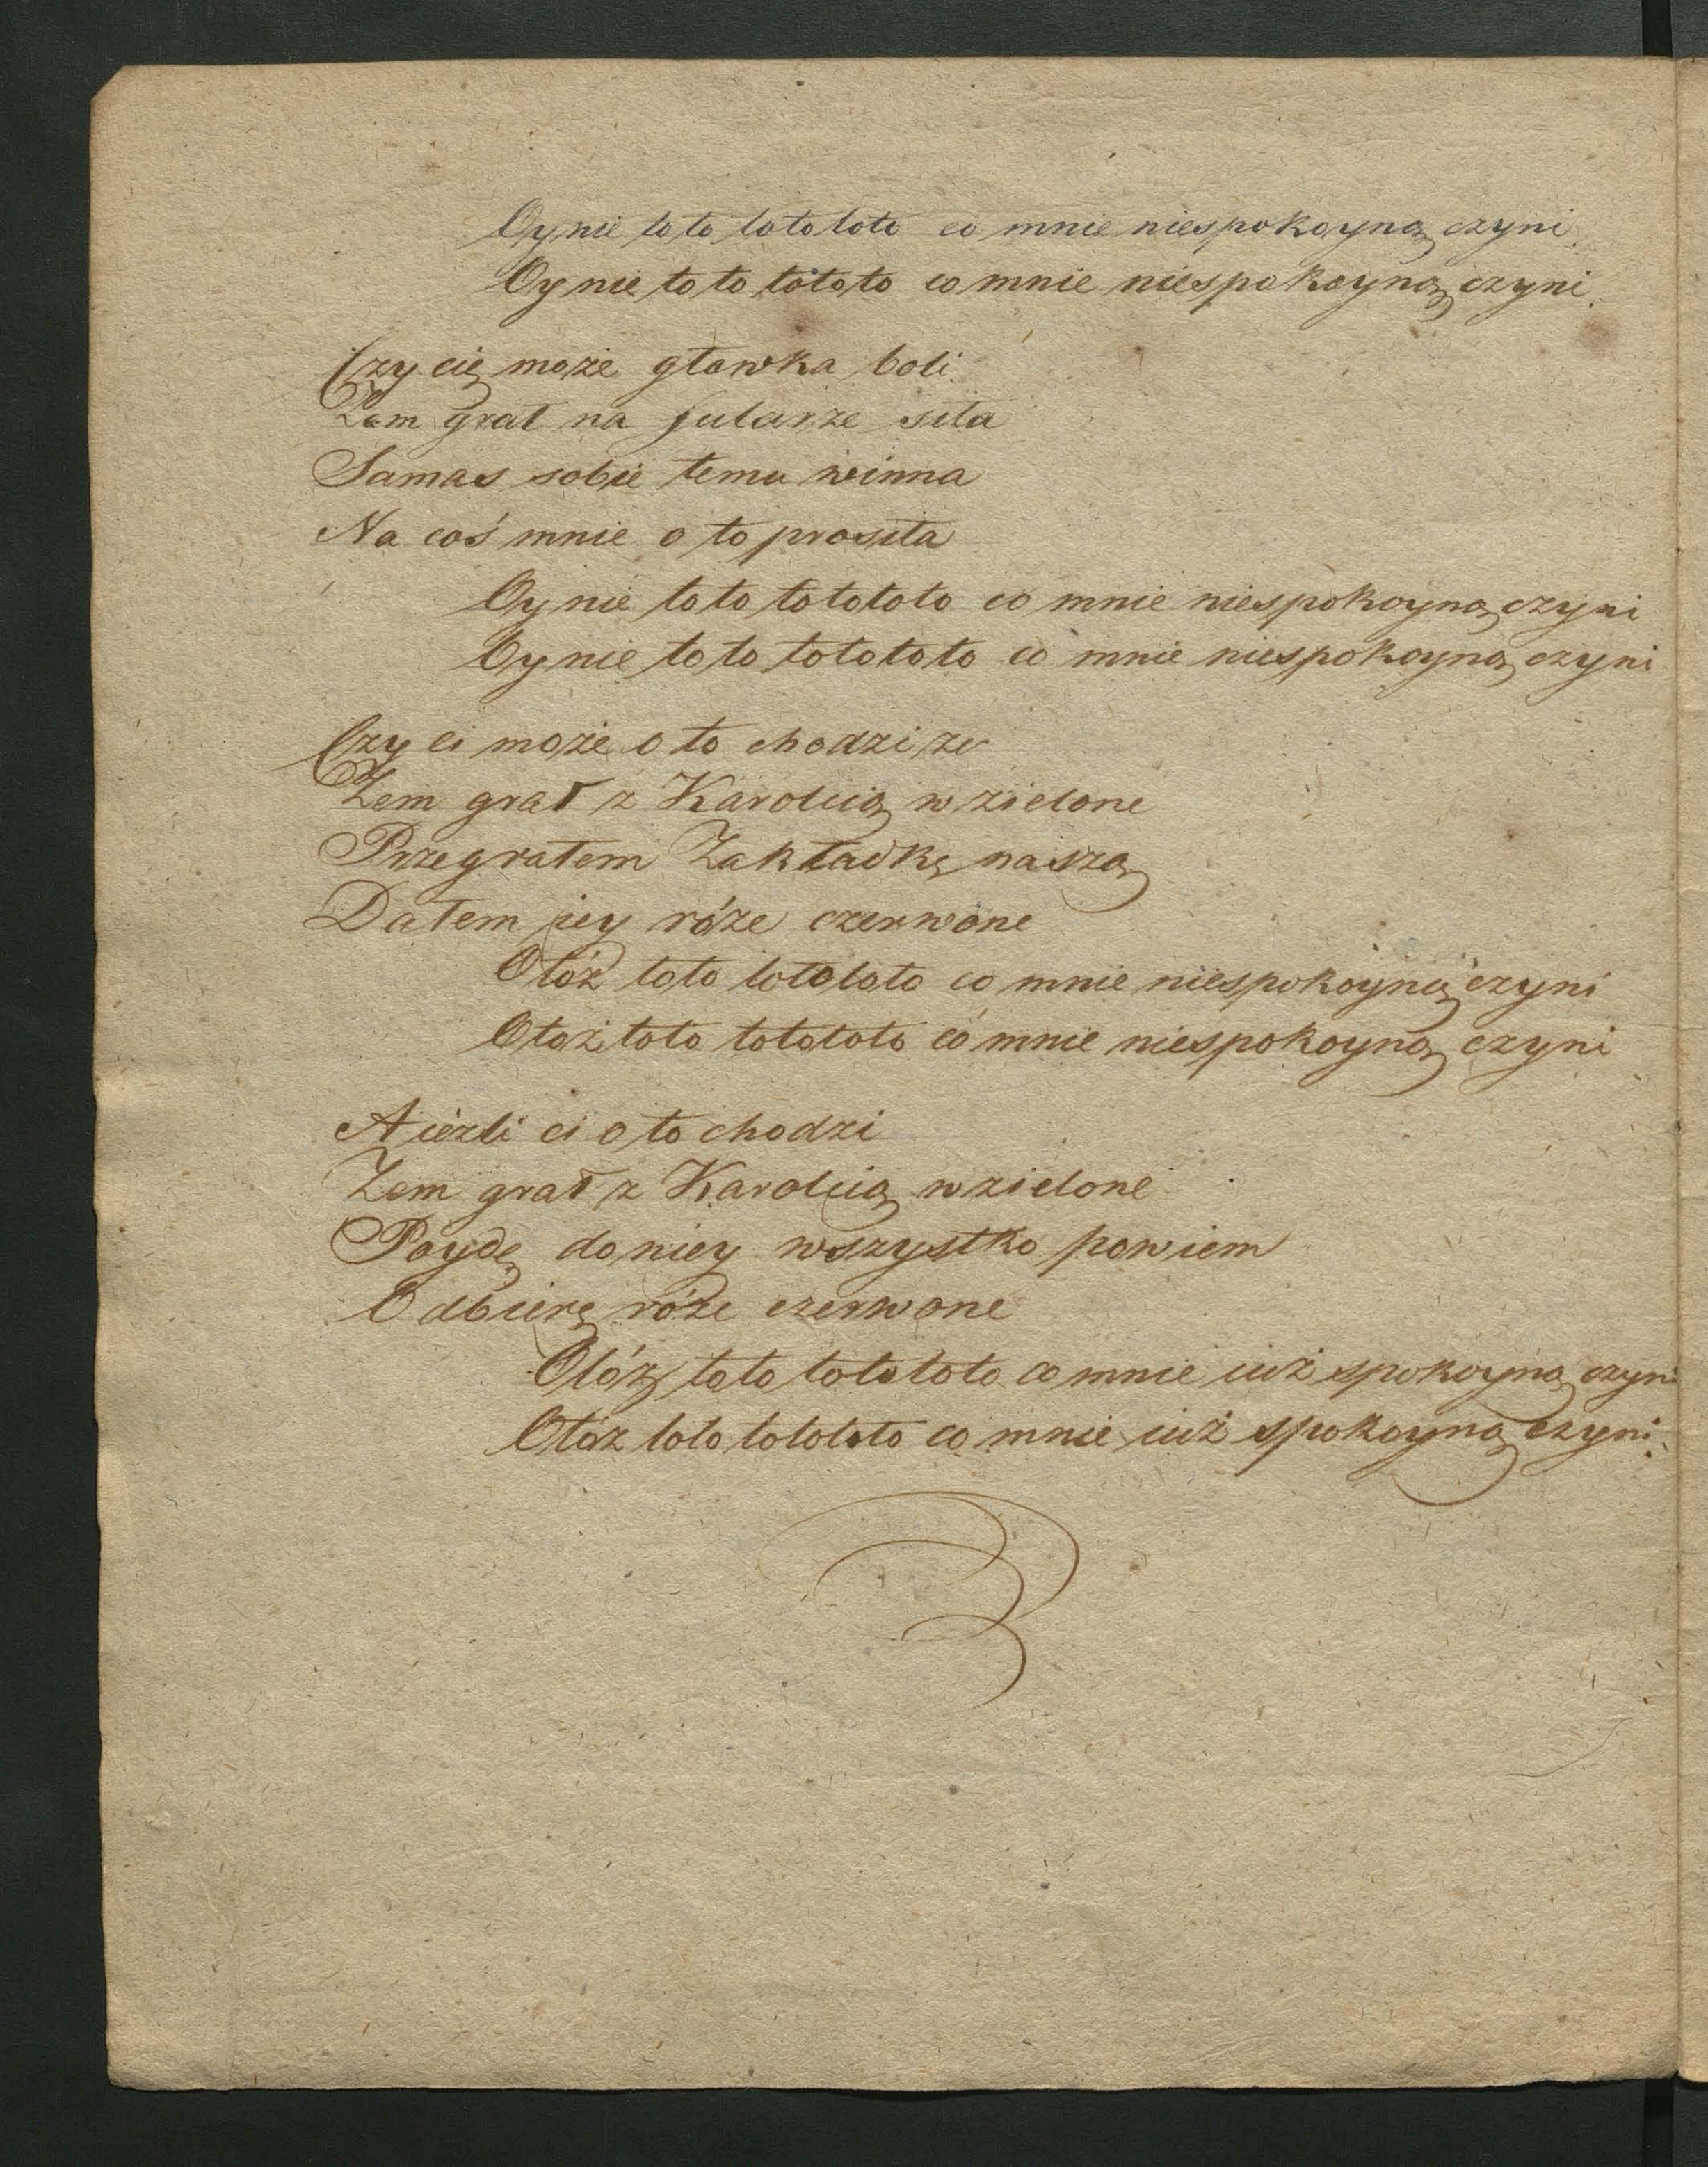 Oy nie to to totototo co mnie niespokoyną czyni.
Oy nie to to tototo co mnie niespokoyną czyni.
Czy cię może głowka boli
Zem grał na fularze siła
Samas sobie temu winna
Na coś mnie o to prosiła
Oy nie to to totototo co mnie niespokoyną czyni
Oy nie to to totototo co mnie niespokoyną czyni
Czy ci może o to chodzi ze
Zem grał z Karolcią w zielone
Przegrałem Zakładkę naszą
Dałem jey róże czerwone
Otóż toto totototo co mnie niespokoyną czyni
Otoż toto totototo co mnie niespokoyną czyni
A ieźli ci o to chodzi
Zem grał z Karolcią w zielone
Poydę do niey wszystko powiem
Odbiorę róże czerwone
Otóż toto totototo co mnie iuż spokoyną czyni
Otóz toto totototo co mnie iuż spokoyną czyni.